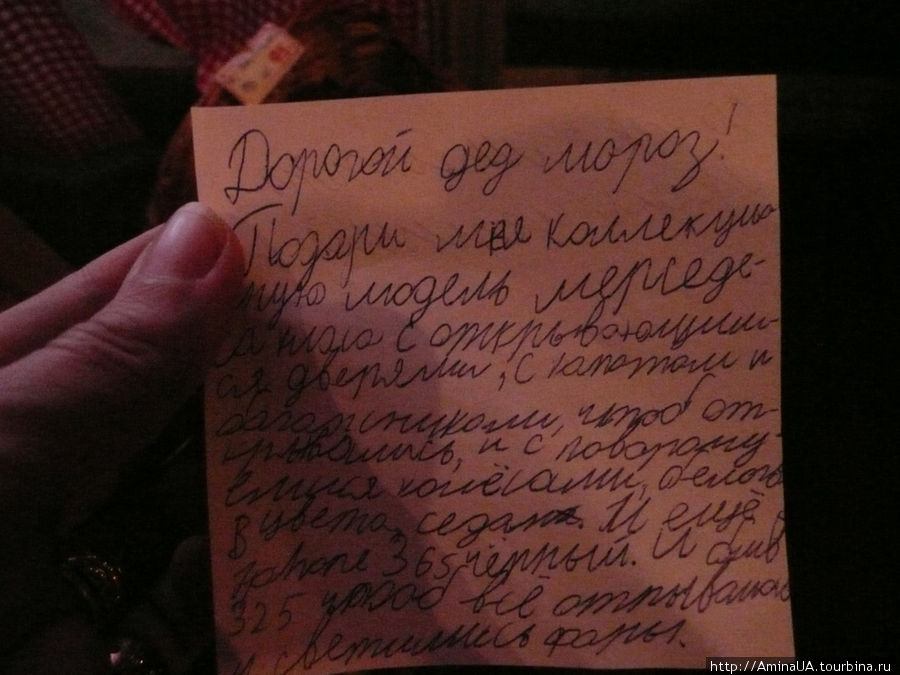 Дорогой дед мороз!
Подари мня коллекцио
ную модель мерседе-
са с открывающими-
ся дверями, с капотом и
багажниками, чтоб от-
крывались, и с поворачу-
колёсами, белого
в цвета, седан. И ещё
365 чёрный. И
325 чтоб всё открывалось
и светились фары.
http://AminaUA.tourbina.ru